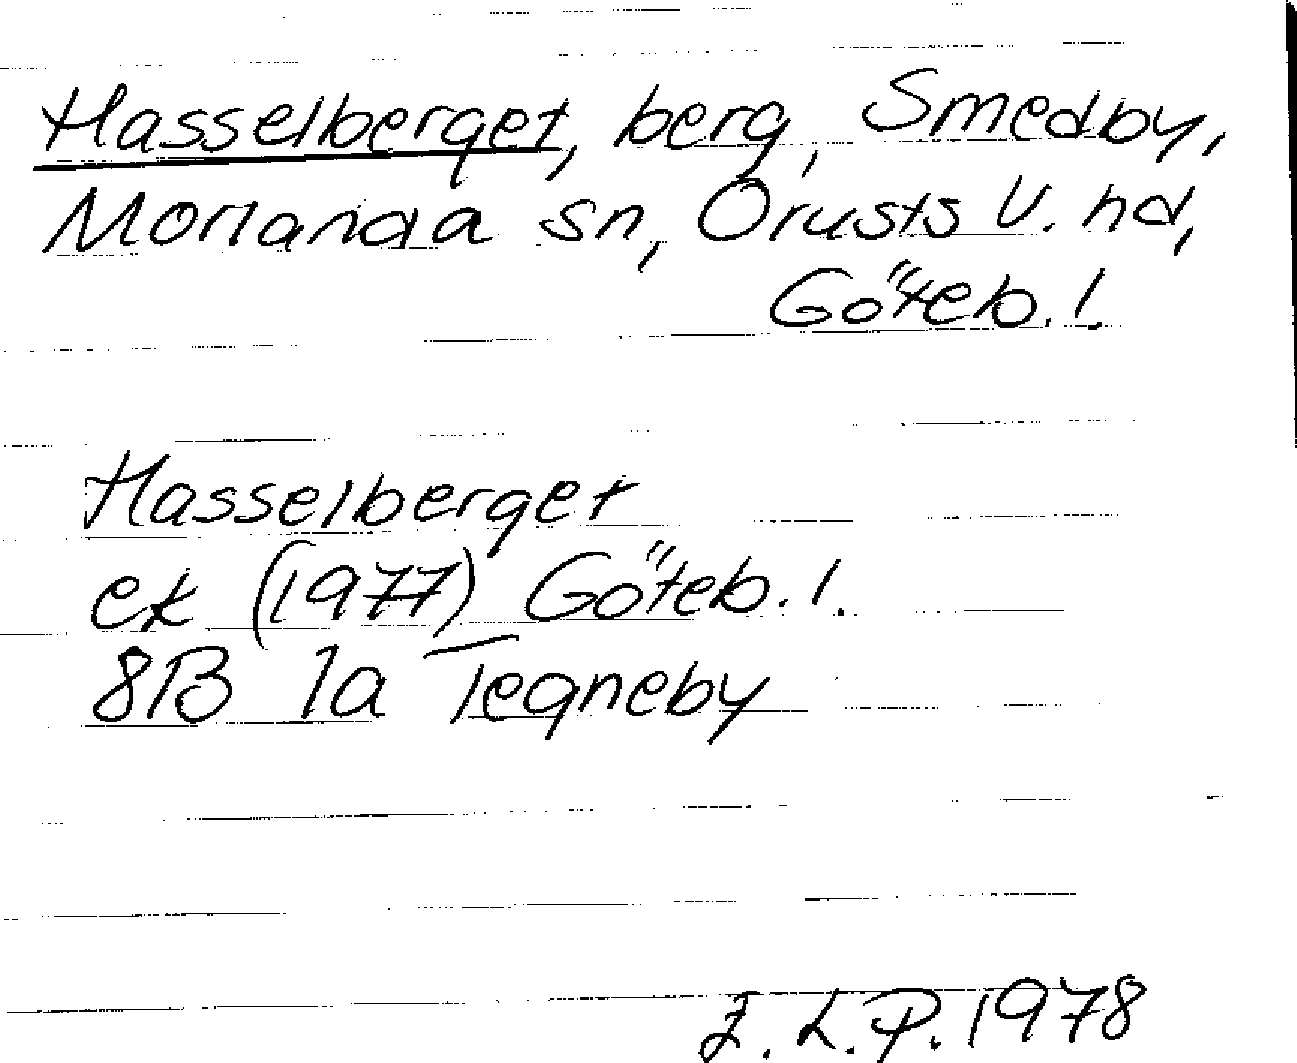 Hasselberget, berg, Smedby,
Morlanda sn, Orusts V. hd,
Göteb. l.
Hasselberget
ek (1977) Göteb. l.
8B 1a Tegneby
L.P. 1978